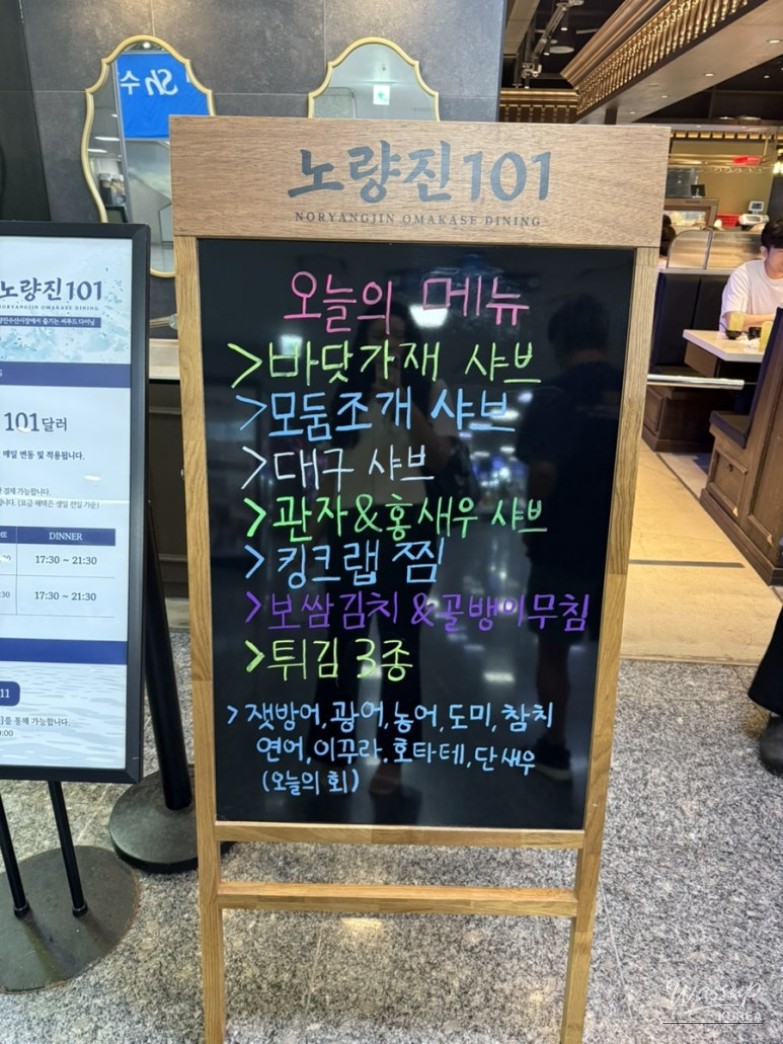 Sh수
노량진101
NORYANGJIN OMAKASE DINING
오늘의 메뉴
>바닷가재 샤브
>모둠조개 샤브
>대구 샤브
>관자&홍새우 샤브
>킹크랩 찜
>보쌈김치&골뱅이무침
>튀김 3종
>잿방어,광어,농어,도미,참치
연어,이꾸라.호타테,단새우
(오늘의 회)
노량진101
NORYANGJIN OMAKASE DINING
101달러
매일 변동 및 적용됩니다.
결제 가능합니다.
DINNER
17:30 ~ 21:30
17:30 ~ 21:30
11
를 통해 가능합니다.
Wassup
KOREA